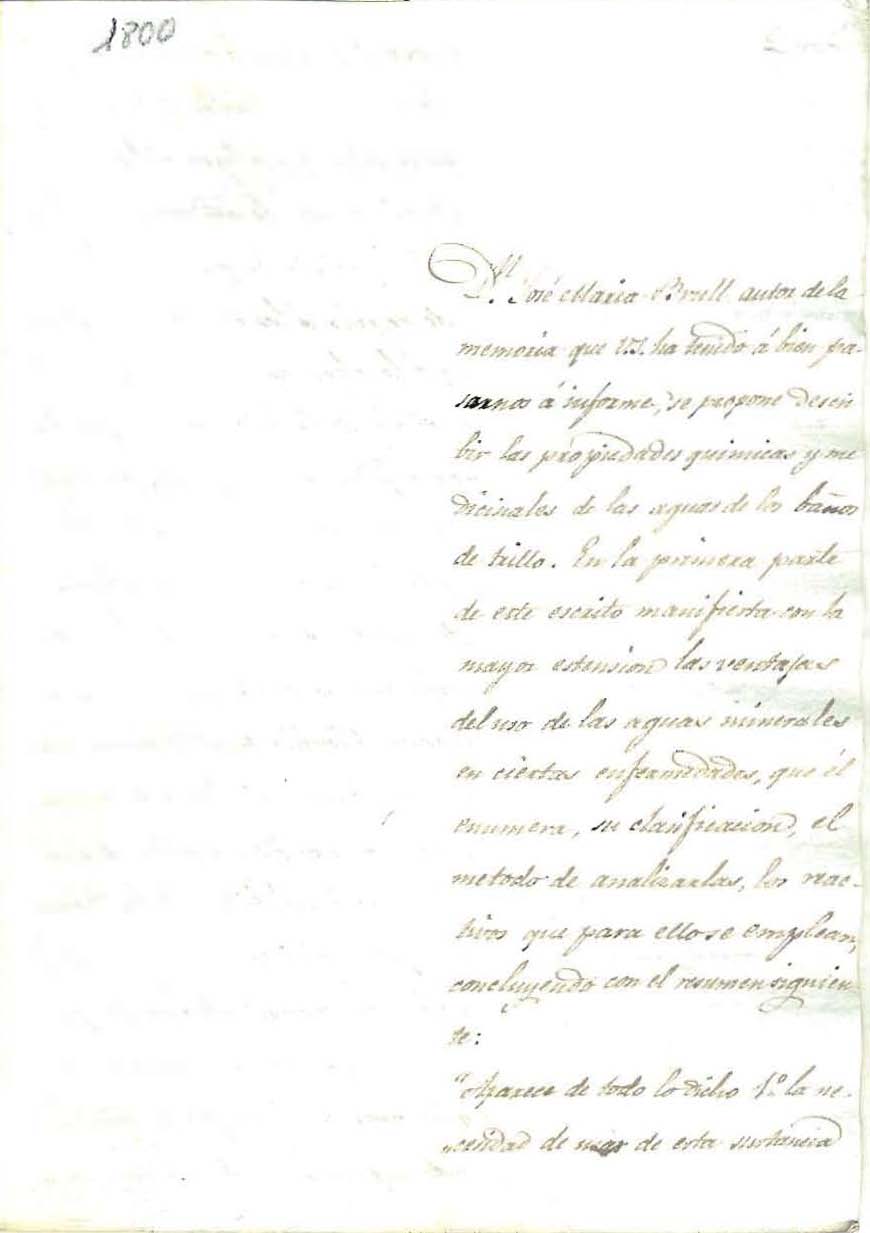 1800
Dⁿ. José Maria Brull autor de la
memoria que V.S. ha tenido á bien pa-
sarnos á informe, se propone descri
bir las propiedades quimicas y me
dicinales de las aguas de los baños
de trillo. En la primera parte
de este escrito manifiesta con la
mayor estension las ventajas
del uso de las aguas minerales
en ciertas enfermedades, que él
enumera, su clasificacion, el
metodo de analizarlas, los reac-
tivos que para ello se emplean,
concluyendo con el resumen siguien
te:
"Aparece de todo lo dicho 1.º la ne-
"cesidad de usar de esta sustancia